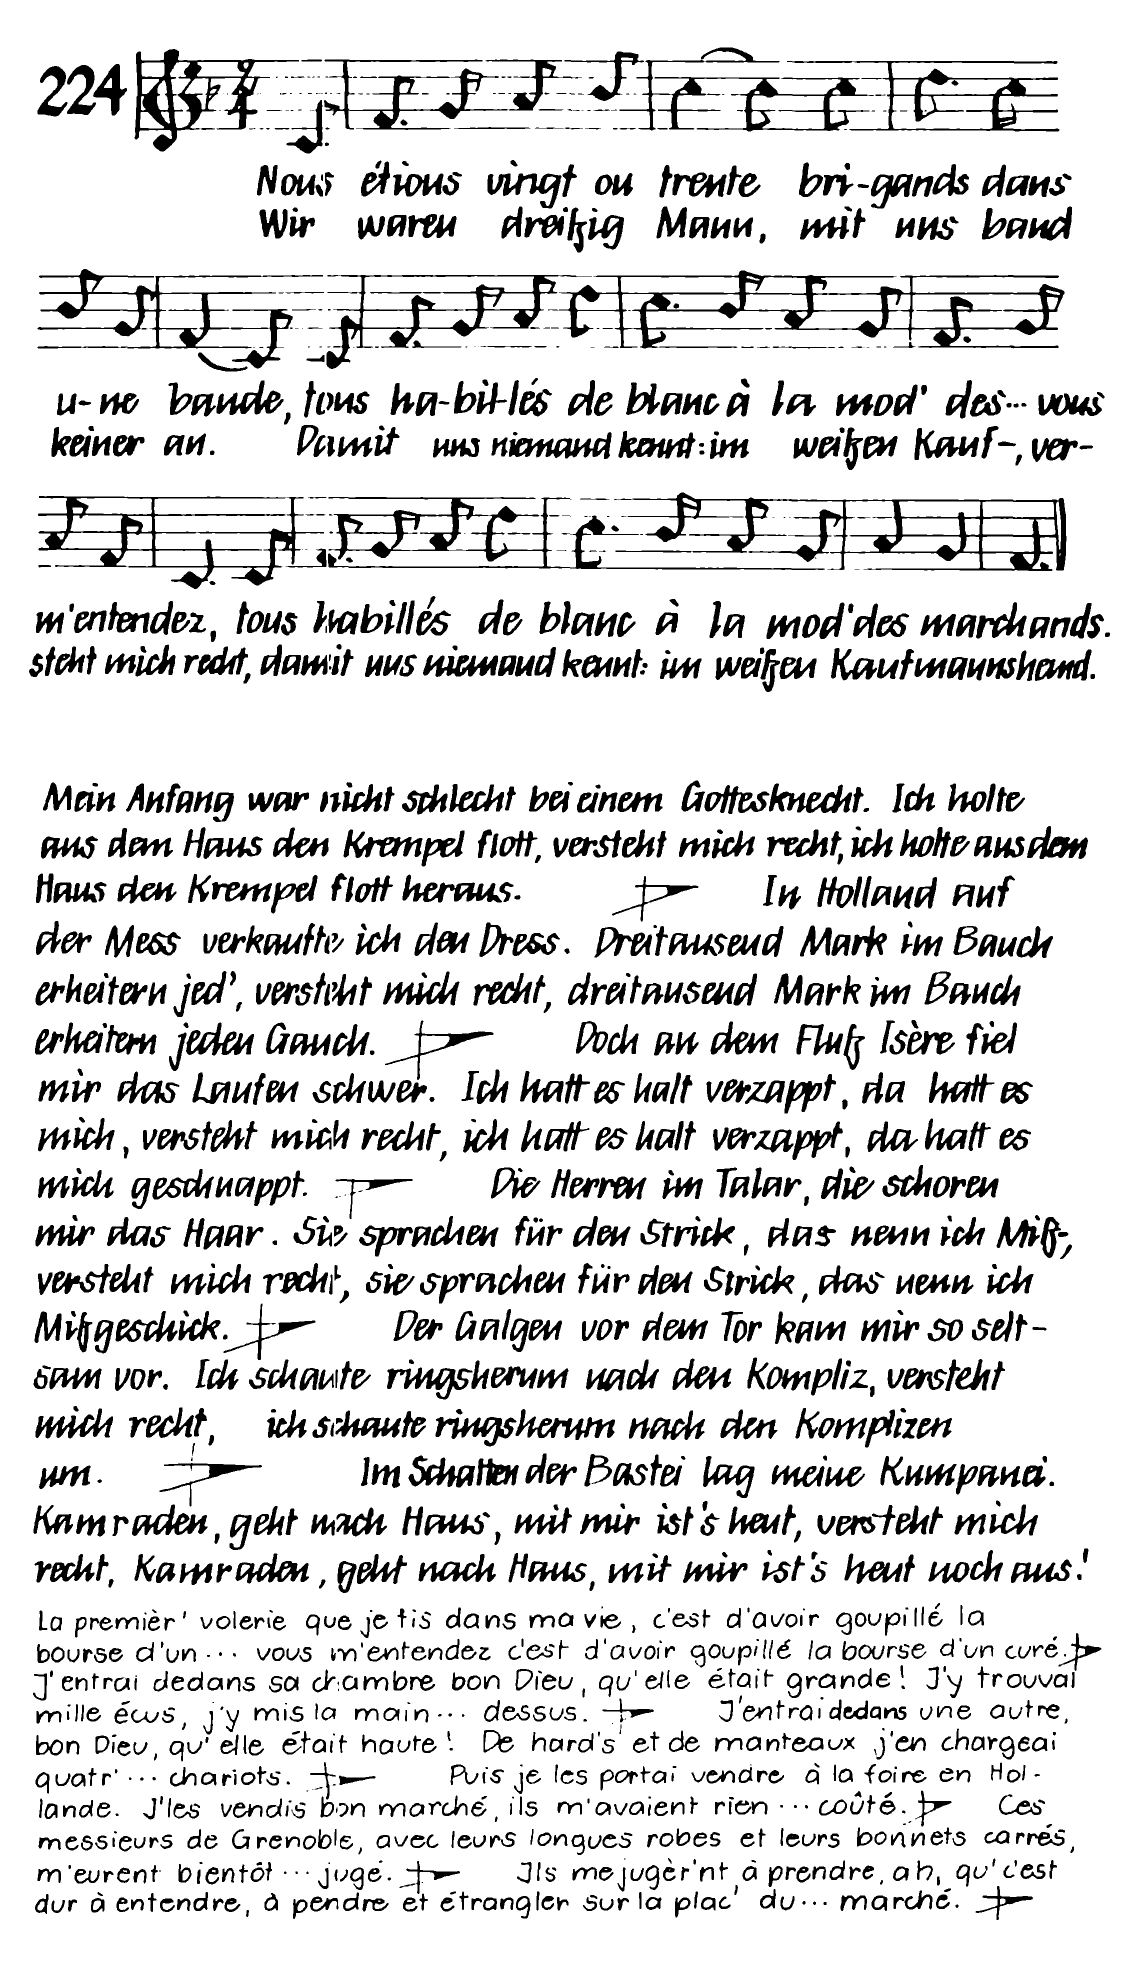 224
Nous étions vingt ou trente bri-gands dans
Wir waren dreißig Mann, mit uns band
u-ne bande, tous ha-bil-lés de blanc à la mod' des... vous
keiner an. Damit uns niemand kennt: im weißen Kauf-, ver-
m'entendez, tous habillés de blanc à la mod' des marchands.
steht mich recht, damit uns niemand kennt: im weißen Kaufmannshemd.
Mein Anfang war nicht schlecht bei einem Gottesknecht. Ich holte
aus dem Haus den Krempel flott, versteht mich recht, ich holte aus dem
Haus den Krempel flott heraus. In Holland auf
der Mess verkaufte ich den Dress. Dreitausend Mark im Bauch
erheitern jed', versteht mich recht, dreitausend Mark im Bauch
erheitern jeden Gauch. Doch an dem Fluß Isère fiel
mir das Laufen schwer. Ich hatt es halt verzappt, da hatt es
mich, versteht mich recht, ich hatt es halt verzappt, da hatt es
mich geschnappt. Die Herren im Talar, die schoren
mir das Haar. Sie sprachen für den Strick, das nenn ich Miß-,
versteht mich recht, sie sprachen für den Strick, das nenn ich
Mißgeschick. Der Galgen vor dem Tor kam mir so selt-
sam vor. Ich schaute ringsherum nach den Kompliz, versteht
mich recht, ich schaute ringsherum nach den Komplizen
um. Im Schatten der Bastei lag meine Kumpanei.
Kamraden, geht nach Haus, mit mir ist's heut, versteht mich
recht, Kamraden, geht nach Haus, mit mir ist's heut noch aus!
La premièr' volerie que je fis dans ma vie, c'est d'avoir goupillé la
bourse d'un... vous m'entendez c'est d'avoir goupillé la bourse d'un curé.
J'entrai dedans sa chambre bon Dieu, qu'elle était grande! J'y trouvai
mille écus, j'y mis la main... dessus. J'entrai dedans une autre,
bon Dieu, qu'elle était haute! De hard's et de manteaux j'en chargeai
quatr'... chariots. Puis je les portai vendre à la foire en Hol-
lande. J'les vendis bon marché, ils m'avaient rien... coûté. Ces
messieurs de Grenoble, avec leurs longues robes et leurs bonnets carrés,
m'eurent bientôt... jugé. Ils me jugèr'nt à prendre, ah, qu'c'est
dur à entendre, à pendre et étrangler sur la plac' du... marché.